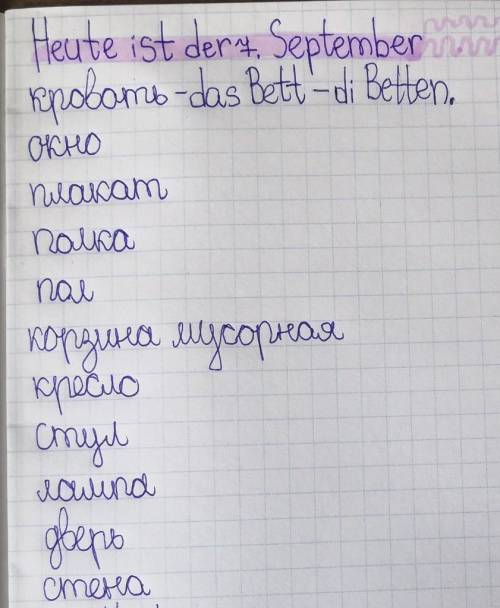 Heute ist der 7. September
кровать - das Bett - di Betten.
окно
плакат
полка
пол
корзина мусорная
кресло
стул
лампа
дверь
стена